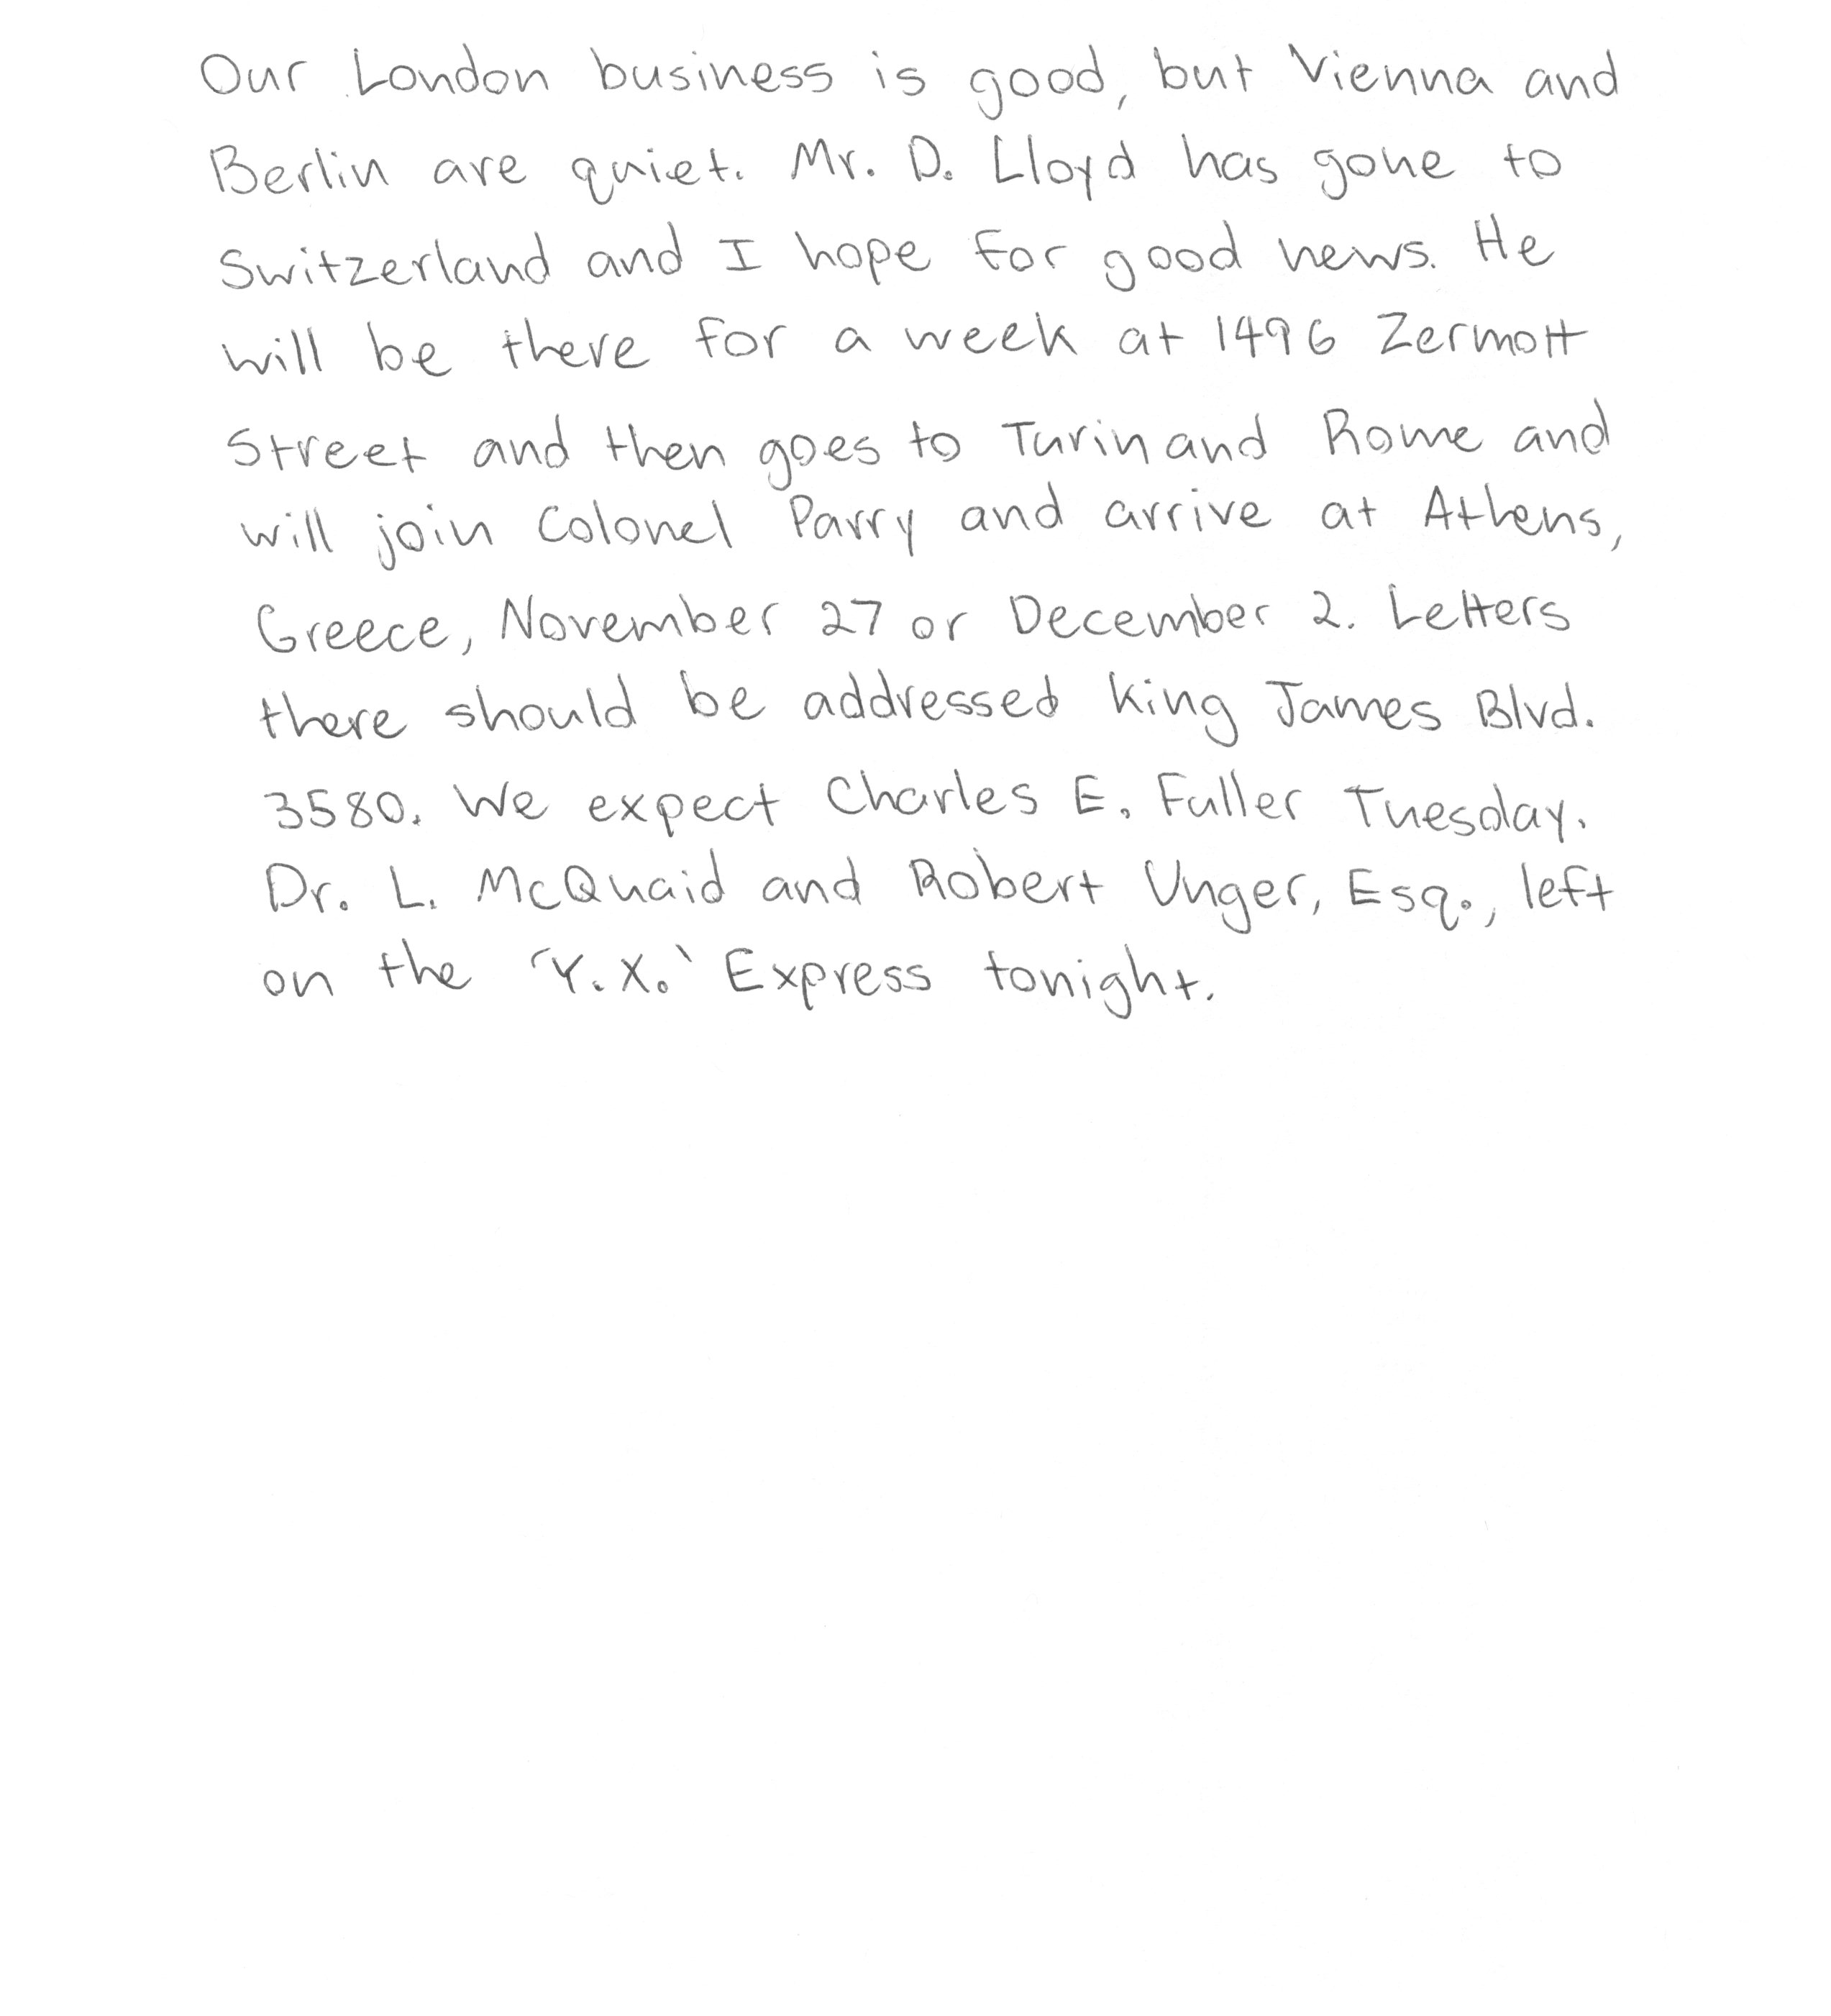 Our London business is good, but Vienna and
Berlin are quiet. Mr. D. Lloyd has gone to
Switzerland and I hope for good news. He
will be there for a week at 1496 Zermott
Street and then goes to Turin and Rome and
will join Colonel Parry and arrive at Athens,
Greece, November 27 or December 2. Letters
there should be addressed King James Blvd.
3580. We expect Charles E. Fuller Tuesday.
Dr. L. McQuaid and Robert Unger, Esq., left
on the 'Y.X.' Express tonight.